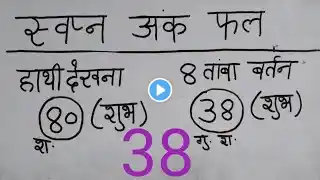 स्वप्न अंक फल
हाथी देखना
80 (शुभ)
श.
8 तांबा बर्तन
38 (शुभ)
गु. श.
38